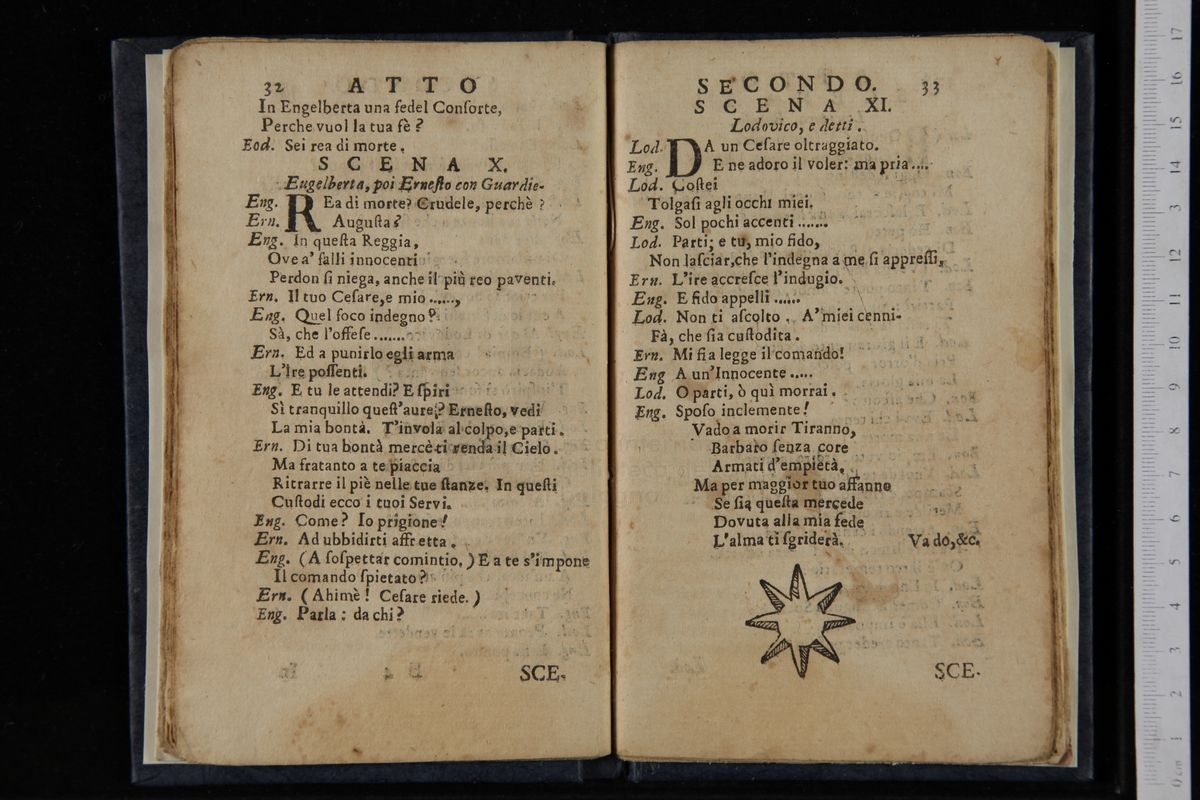 32 ATTO
In Engelberta una fedel Conforte,
Perche vuol la tua fè ?
Eod. Sei rea di morte.
SCENA X.
Eugelberta, poi Ernesto con Guardie-
Eng. REa di morte? Crudele, perchè ?
Ern. Augusta?
Eng. In questa Reggia,
Ove a' falli innocenti
Perdon si niega, anche il più reo paventi.
Ern. Il tuo Cesare, e mio ......,
Eng. Quel foco indegno?
Sà, che l'offese.......
Ern. Ed a punirlo egli arma
L'ire possenti.
Eng. E tu le attendi? E spiri
Sì tranquillo quest'aure? Ernesto, vedi
La mia bontà. T'invola al colpo, e parti.
Ern. Di tua bontà mercè ti renda il Cielo.
Ma fratanto a te piaccia
Ritrarre il piè nelle tue stanze. In questi
Custodi ecco i tuoi Servi.
Eng. Come? Io prigione!
Ern. Ad ubbidirti affretta.
Eng. (A sospettar comintio.) E a te s'impone
Il comando spietato?
Ern. (Ahimè! Cesare riede.)
Eng. Parla: da chi?
SCE.
SECONDO. 33
SCENA XI.
Lodovico, e detti.
Lod. DA un Cesare oltraggiato.
Eng. E ne adoro il voler: ma pria....
Lod. Costei
Tolgasi agli occhi miei.
Eng. Sol pochi accenti .......
Lod. Parti; e tu, mio fido,
Non lasciar, che l'indegna a me si appressi.
Ern. L'ire accresce l'indugio.
Eng. E fido appelli ......
Lod. Non ti ascolto. A' miei cenni-
Fà, che sia custodita.
Ern. Mi sia legge il comando!
Eng A un'Innocente .....
Lod. O parti, ò quì morrai.
Eng. Sposo inclemente!
Vado a morir Tiranno,
Barbaro senza core
Armati d'empietà.
Ma per maggior tuo affanno
Se sia questa mercede
Dovuta alla mia fede
L'alma ti sgriderà. Vado, &c.
SCE.